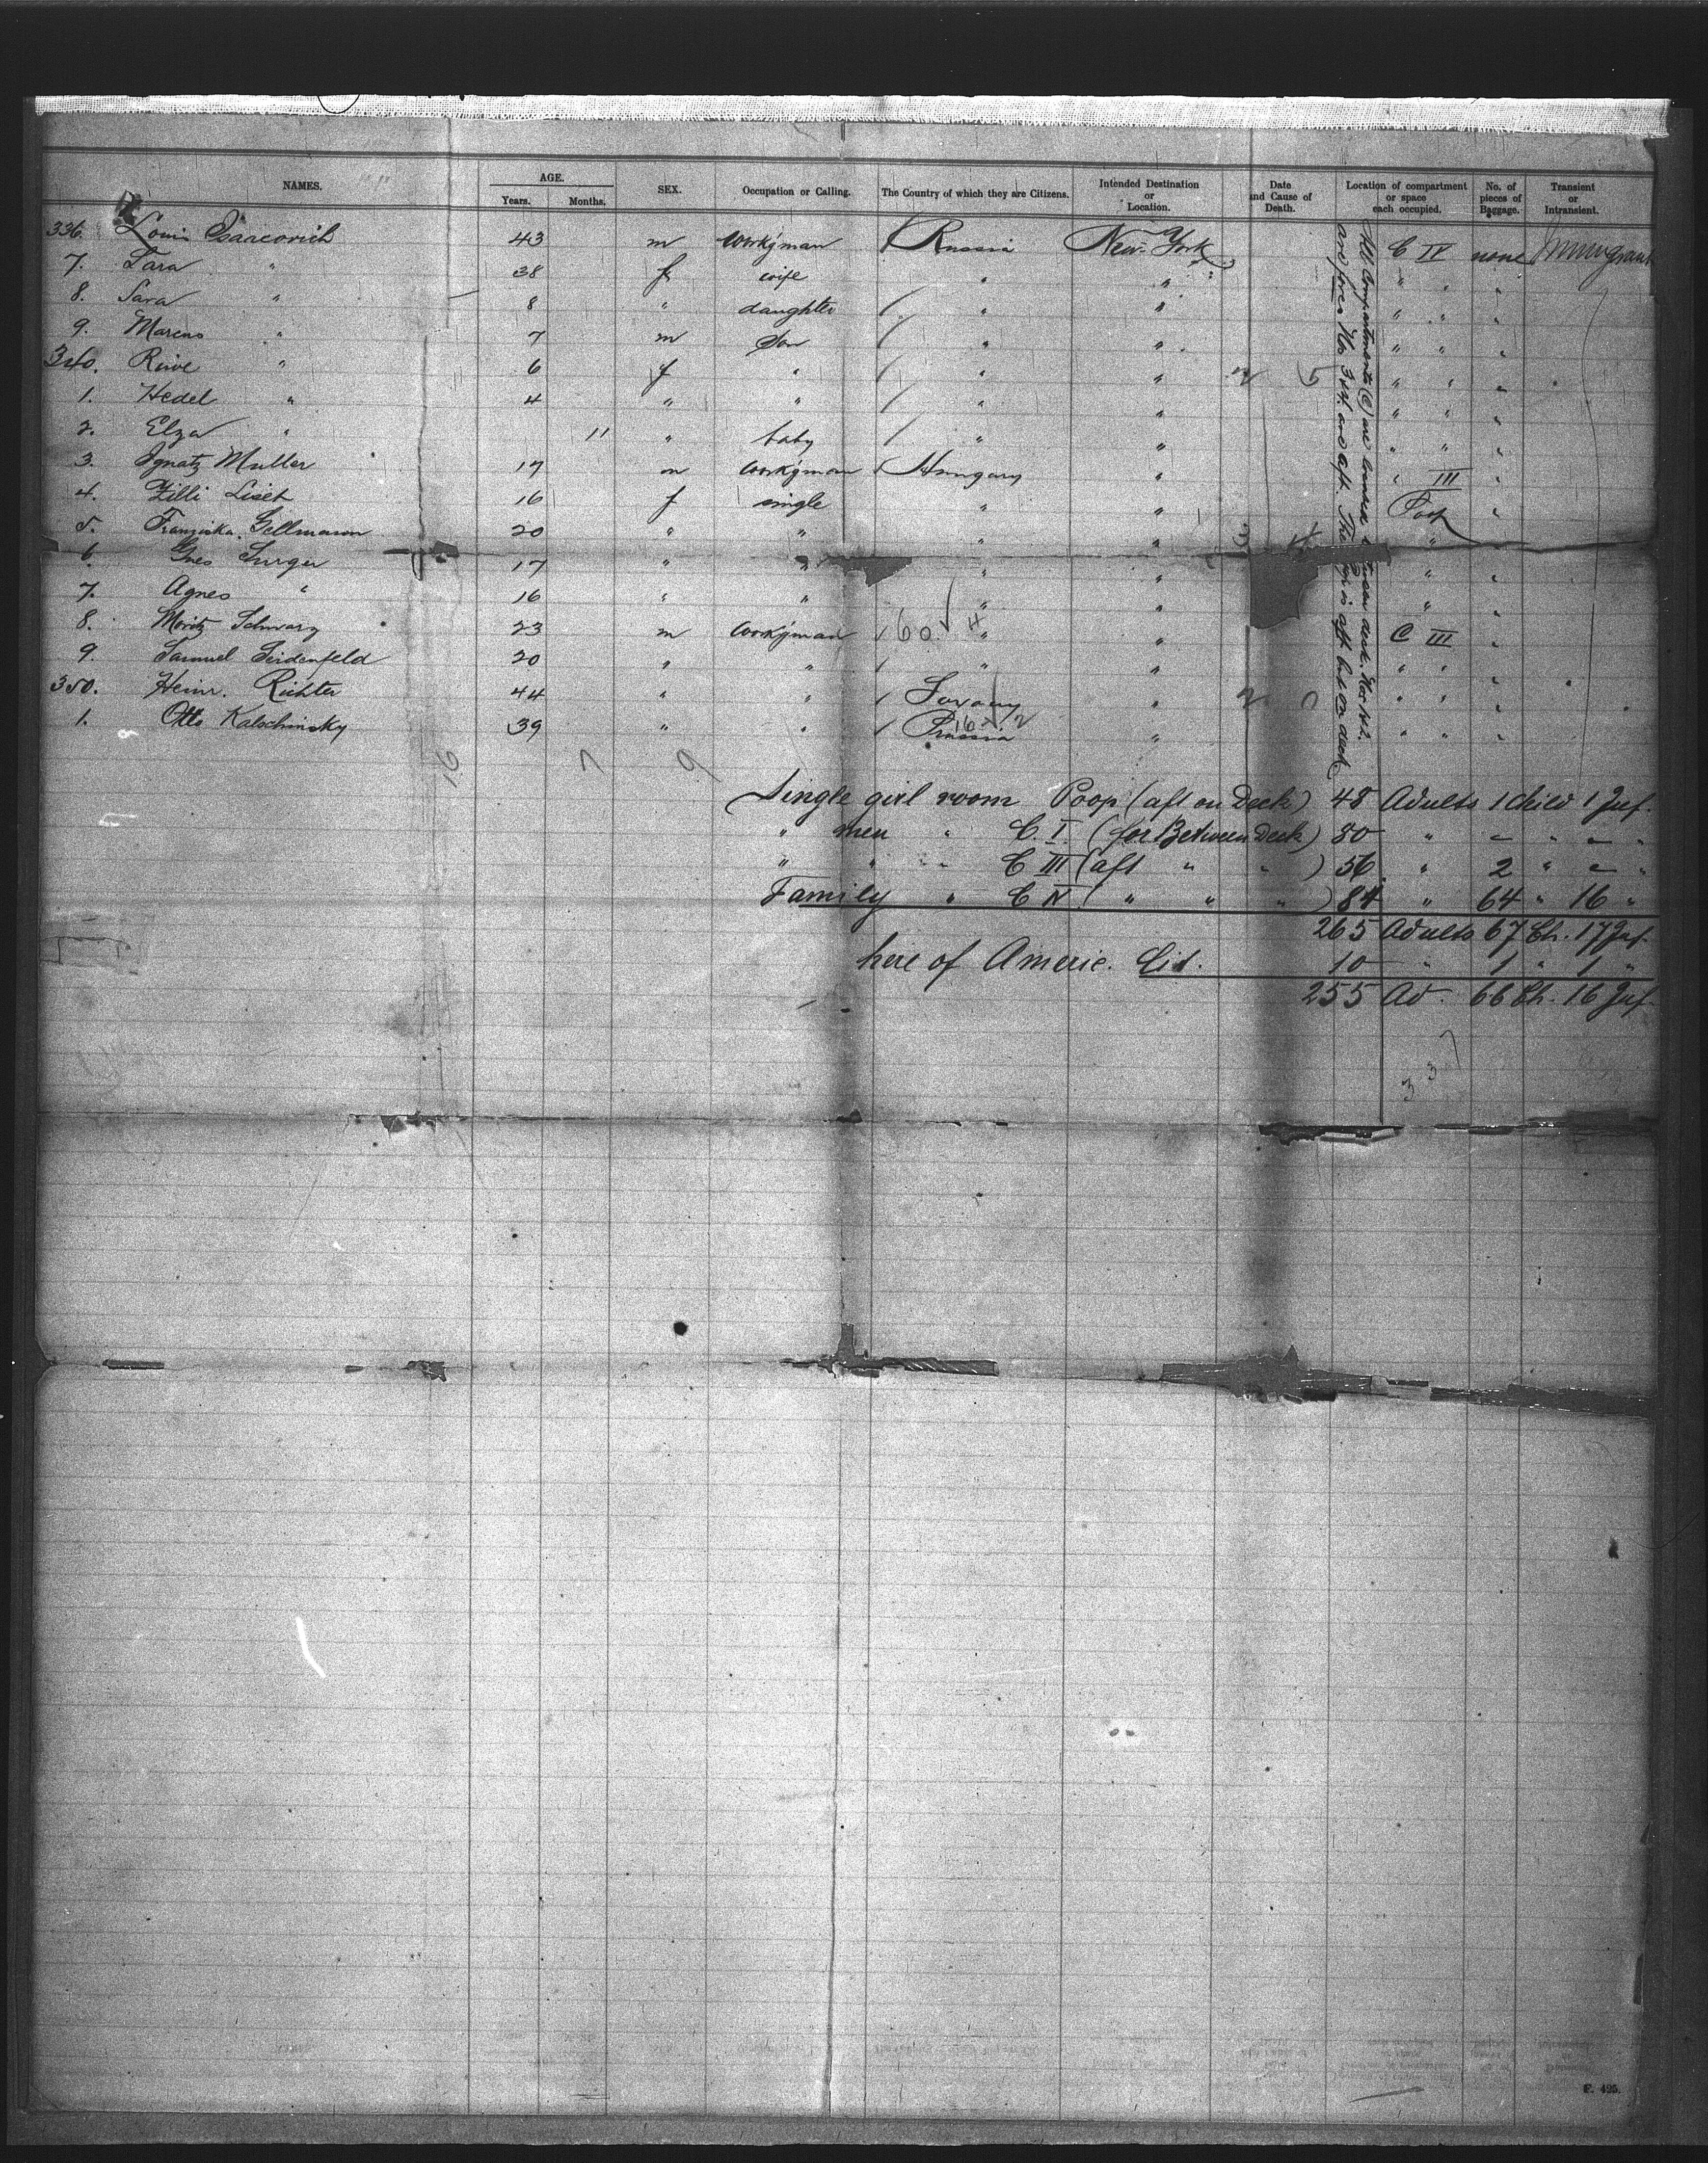 NAMES. AGE. Years. Months. SEX. Occupation or Calling. The Country of which they are Citizens. Intended Destination or Location. Date and Cause of Death. Location of compartment or space each occupied. No. of pieces of Baggage. Transient or Intransient.
336. Louis Isaacovich 43 m workg'man Russia New-York C IV none Immigrant
7. Sara " 38 f wife " " " " "
8. Sara " 8 " daughter " " " " "
9. Marcus " 7 m son " " " " "
340. Riwe " 6 f " " " " " "
1. Hedel " 4 " " " " " " "
2. Elza " 11 " baby " " " " "
3. Ignatz Muller 17 m workg'man Hungary " " III "
4. Zilli 16 f single " " Poop "
5. Franziska Gellmann 20 " " " " " "
6. 17 " " " " " "
7. Agnes " 16 " " " " " "
8. Moritz Schwarz 23 m workg'man 60 4 " " C III "
9. Samuel Seidenfeld 20 " " " " " " "
350. Heinr. Richter 44 " " " " " "
1. Otto Kalschinsky 39 " " Prussia " " " "
All Compartments (C) are located between deck. Nos 1 & 2.
are fore; Nos 3 & 4 are aft. The Poop is aft but on deck
16 7 9
Single girl room Poop (aft on Deck) 45 Adults 1 Child 1 Inf.
" men " C. I. (for Between Deck) 80 " – " – "
" " " C III (aft " " ) 56 " 2 " – "
Family " C IV ( " " " ) 84 " 64 " 16 "
265 Adults 67 Ch. 17 Inf.
here of Americ. Cit. 10 " 1 " 1 "
255 Ad. 66 Ch. 16 Inf.
337
F. 495.